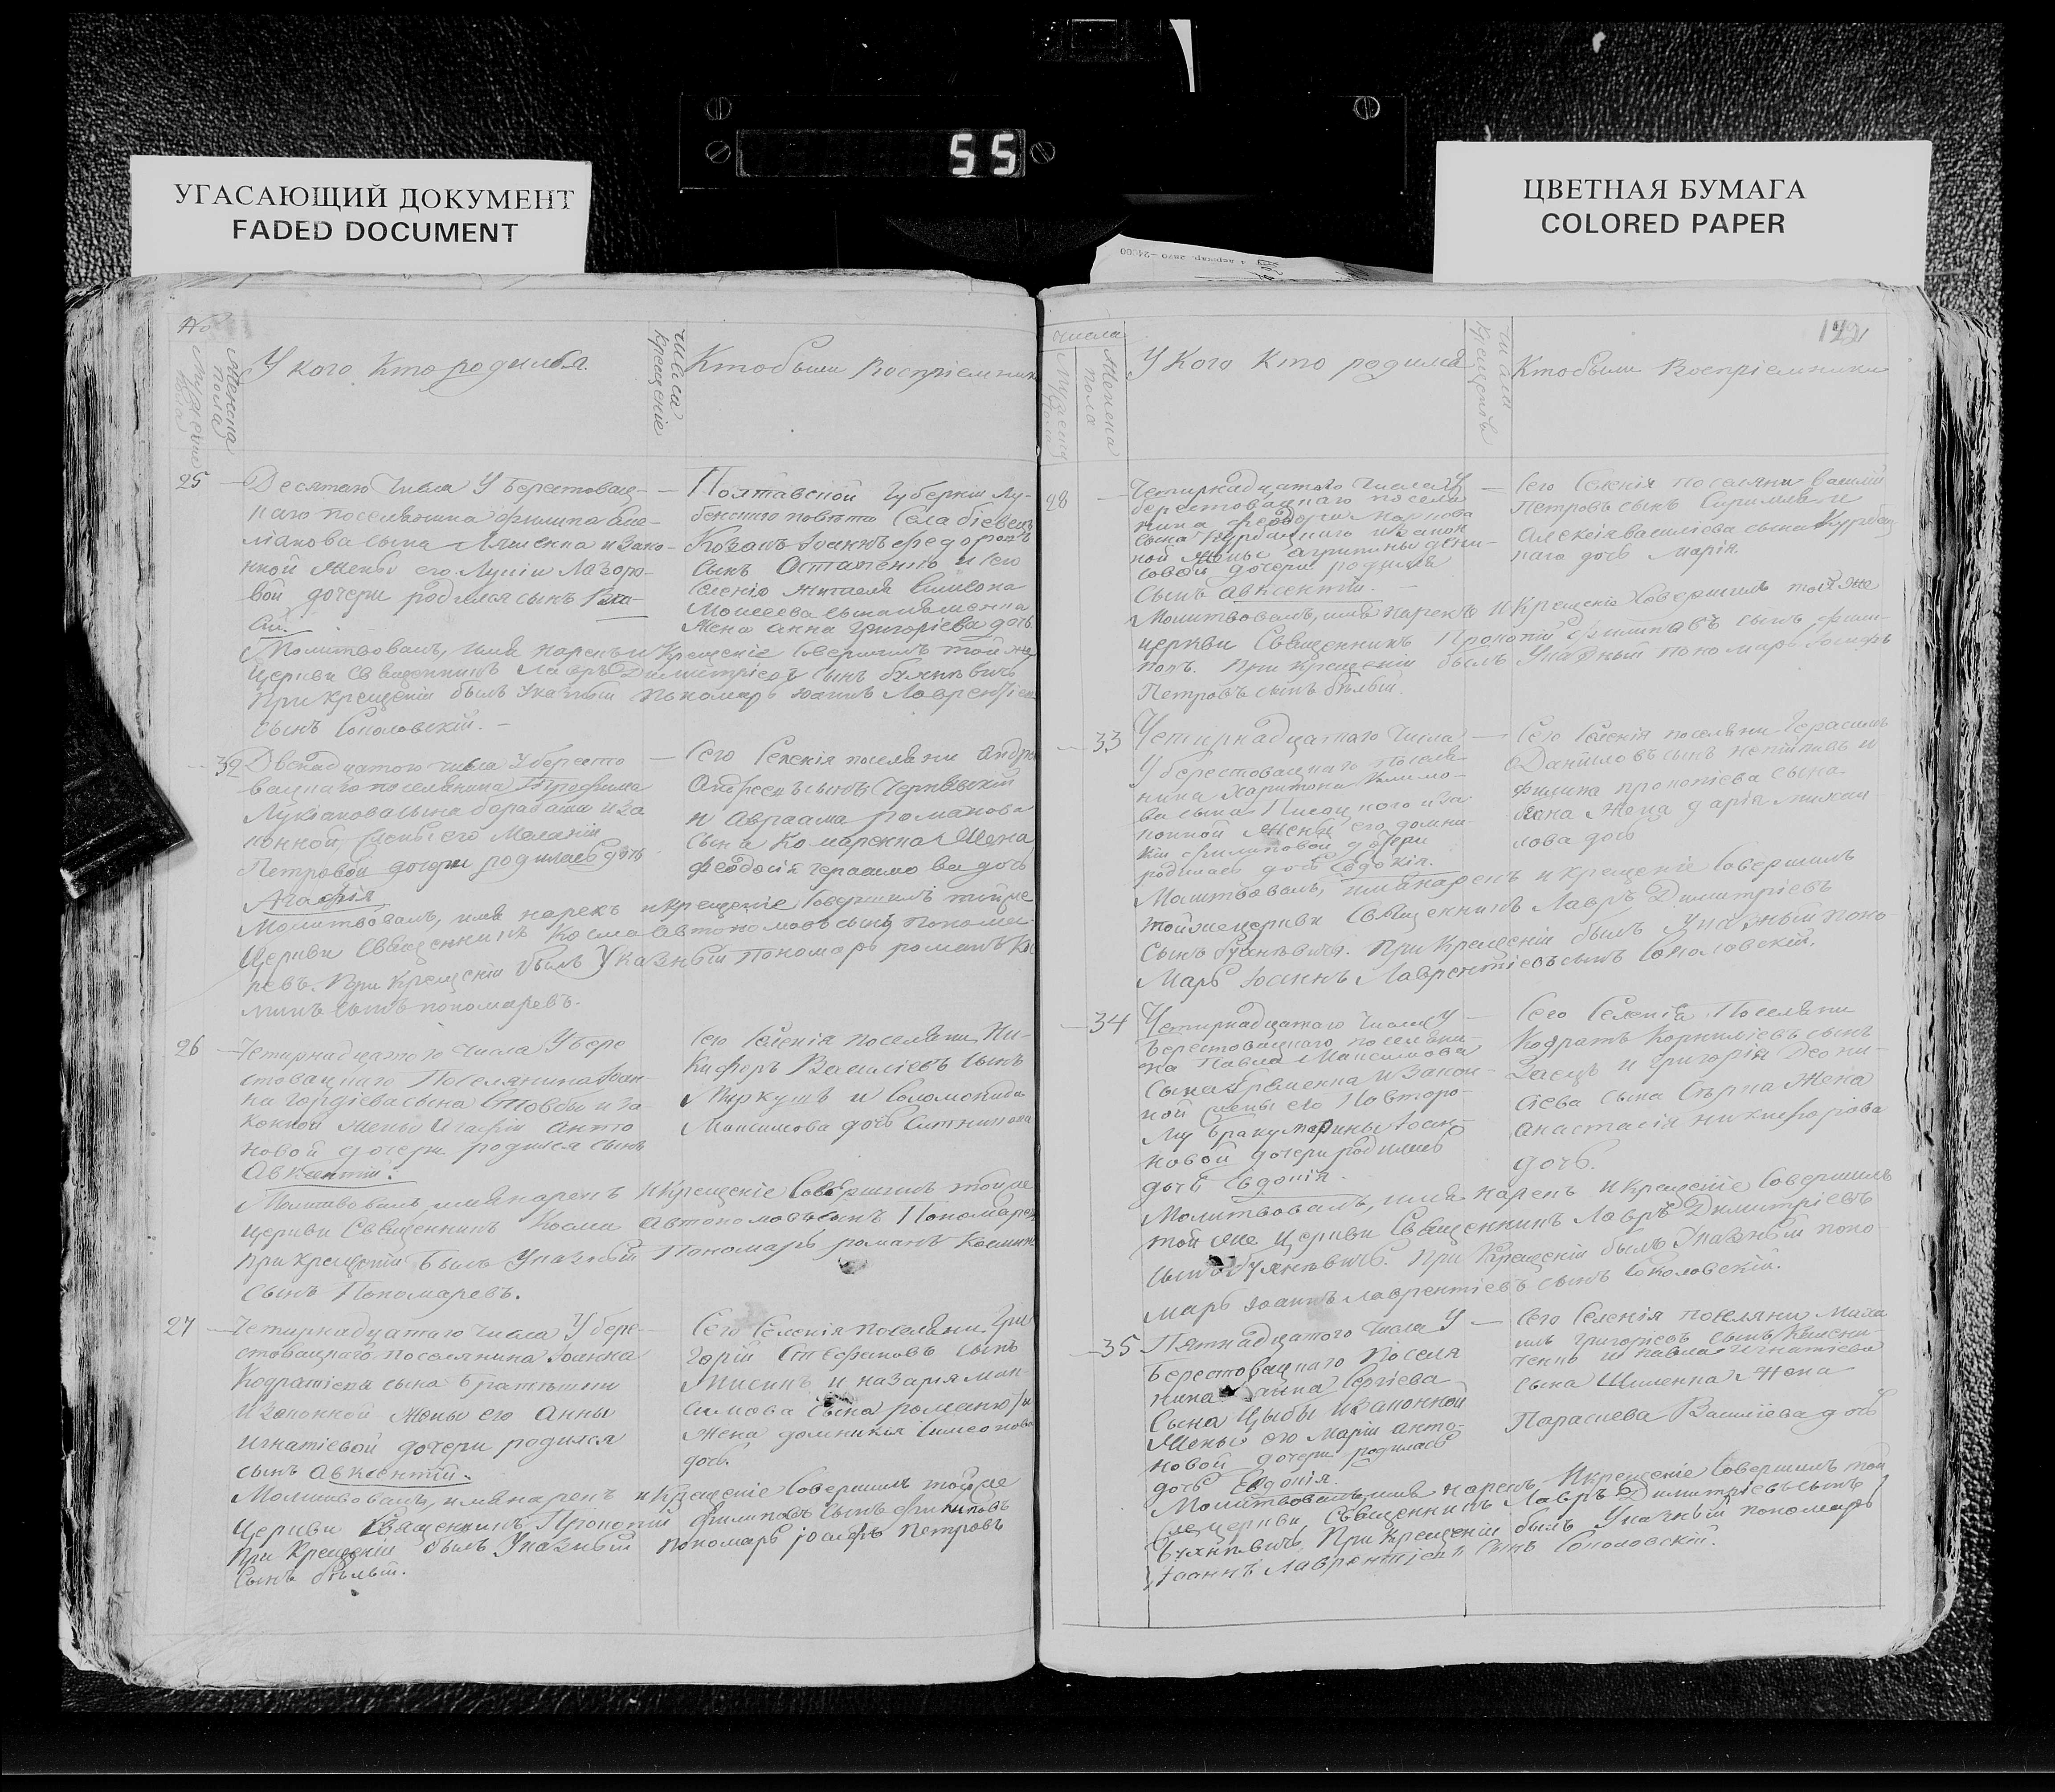 55
УГАСАЮЩИЙ ДОКУМЕНТ
FADED DOCUMENT
ЦВЕТНАЯ БУМАГА
COLORED PAPER
№
Мужеска пола
Женска пола
У кого кто родился.
Числа Крещенїе
Кто были Воспрїемники
25
Десятого Числа У Берестовац-
наго поселянина Филипа
сына Ляшенка и зако-
нной жены его Лукїи Лазоро-
вой дочери родился сынъ
Молитвовалъ, имя нарекъ и Крещенїе Совершилъ той же
Церкви Священникъ Лавръ Димитрїевъ сынъ
При Крещенїи былъ Указный пономарь Іоаннъ Лаврентїевъ
сынъ Соколовскїй.
Полтавской Губернїи Лу-
бенского повѣта Села
Козакъ Іоаннъ Федоровъ
сынъ Остапенко и сего
Селенїя жителя Симеона
Моисеева сына Ляшенка
жена Анна Григорїева дочь
32
Двенадцатого числа У Бересто
вацкаго поселянина Трофима
Лукїанова сына Барабаша и за
конной жены его Меланїи
Петровой дочери родилась дочь
Агафїя
Молитвовалъ, имя нарекъ и крещенїе Совершилъ той же
Церкви Священникъ Косма Автономовъ сынъ Понома-
ревъ. При Крещенїи былъ Указный пономарь Романъ Кос
минъ сынъ пономаревъ.
Сего Селенїя поселяни Андрей
Андреевъ сынъ Чернявскїй
и Авраама Романова
сына Комаренка жена
Феодосїя Герасимова дочь
26
Четирнадцатого числа У Бере
стовацкаго Поселянина Іоан-
на Гордїева сына и за-
конной жены Агафїи Анто
новой дочери родился сынъ
Авксентїй.
Молитвовалъ, имя нарекъ и Крещенїе Совершилъ той же
Церкви Священникъ Косма Автономовъ сынъ Пономарев
При Крещенїи былъ Указный Пономарь Романъ Косминъ
сынъ Пономаревъ.
Сего Селенїя поселяни Ни-
кифоръ Василїевъ сынъ
и Соломонида
Максимова дочь
27
Четирнадцатаго числа У Бере-
стовацкаго поселянина Іоанна
Кодратїева сына
и законной жены его Анны
Игнатїевой дочери родился
сынъ Авксентїй.
Молитвовалъ, имя нарекъ и Крещенїе Совершилъ той же
Церкви Священникъ Прокопїй Филиповъ сынъ Филиповъ
При Крещенїи былъ Указный пономарь Іосифъ Петровъ
сынъ Бѣлый.
Сего Селенїя поселяни Гри
горїй Стефановъ сынъ
и Назарїя Мак-
симова сына
жена Домникїя Симеонова
дочь.
числа
Мужеска пола
Женска пола
У Кого кто родился
Числа Крещенїе
Кто были Воспрїемники
28
Четирнадцатого Числа У
Берестовацкаго поселя
нина Феодора Маркова
сына и закон
ной жены Агрипины Дени-
совой дочери родился
сынъ Авксентїй.
Молитвовалъ, имя нарекъ и Крещенїе Совершилъ той же
церкви Священникъ Прокопїй Филиповъ сынъ Фили-
повъ. При крещенїи былъ Указный пономарь Іосифъ
Петровъ сынъ Бѣлый.
Сего Селенїя поселяни Василїй
Петровъ сынъ и
Алексїя Василїева сына
дочь Марїя.
33
Четирнадцатаго Числа
У Берестовацкаго поселя
нина Харитона Климо-
ва сына и за
конной жены его Домни-
кїи Филиповой дочери
родилась дочь Евдокїя.
Молитвовалъ, имя нарекъ и крещенїе Совершилъ
той же церкви Священникъ Лавръ Димитрїевъ
сынъ. При Крещенїи былъ Указный поно-
марь Іоаннъ Лаврентїевъ сынъ Соколовскїй.
Сего Селенїя поселяни Герасимъ
Данїиловъ сынъ и
Филипа Прокопїева сына
жена Дарїя Михаи-
лова дочь
34
Четирнадцатаго Числа У
Берестовацкаго поселяни-
на Павла Максимова
сына Еременка и закон-
ной жены его По второ-
му браку Марины Іоан-
новой дочери родилась
дочь Евдокїя.
Молитвовалъ, имя нарекъ и Крещенїе Совершилъ
той же Церкви Священникъ Лавръ Димитрїевъ
сынъ. При Крещенїи былъ Указный поно
марь Іоаннъ Лаврентїевъ сынъ Соколовскїй.
Сего Селенїя Поселяни
Кодратъ Корнилїевъ сынъ
Заецъ и Григорїя Деони-
сїева сына Сѣрка жена
Анастасїя Никифорова
дочь.
35
Пятнадцатого Числа У
Берестовацкаго Поселя
нина Сергїева
сына Цыбы и законной
жены его Марїи Анто-
новой дочери родилась
дочь Евдокїя.
Молитвовалъ, имя нарекъ и крещенїе Совершилъ той
же церкви Священникъ Лавръ Димитрїевъ сынъ
При Крещенїи былъ Указный пономарь
Іоаннъ Лаврентїевъ сынъ Соколовскїй.
Сего Селенїя поселяни Миха
илъ Григорїевъ сынъ
и Павла Игнатїева
сына жена
Параскева Василїева дочь